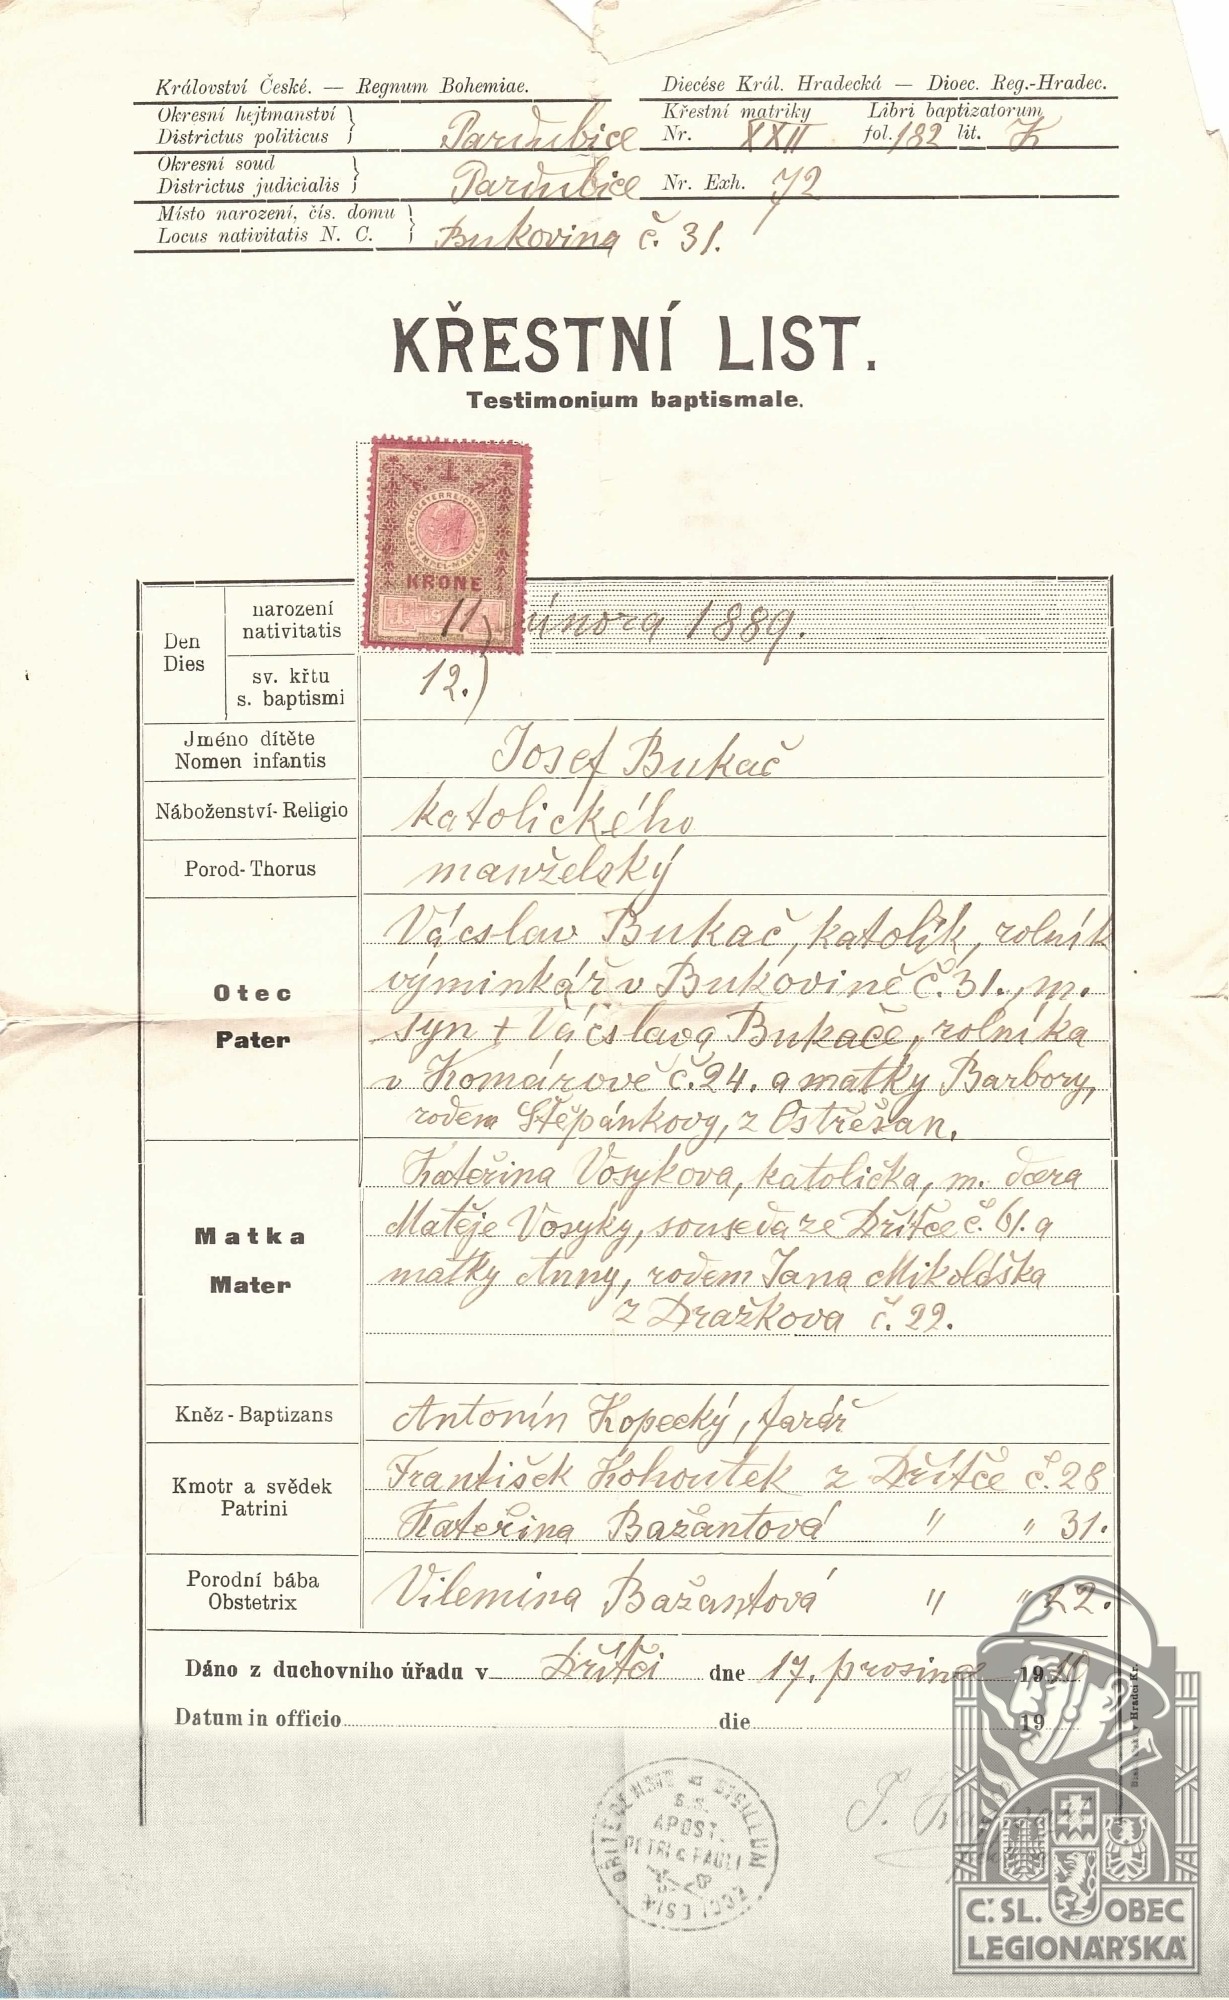 Království České. — Regnum Bohemiae.
Diecése Král. Hradecká — Dioec. Reg.-Hradec.
Okresní hejtmanství
Districtus politicus
Pardubice
Křestní matriky Libri baptizatorum
Nr. XXII fol. 182 lit. K
Okresní soud
Districtus judicialis
Pardubice
Nr. Exh. 72
Místo narození, čís. domu
Locus nativitatis N. C.
Bukovina č. 31.
KŘESTNÍ LIST.
Testimonium baptismale.
1
K.K. OESTERREICHISCHE STEMPEL-MARKE
KRONE
Den
Dies
narození
nativitatis
11.) února 1889.
sv. křtu
s. baptismi
12.)
Jméno dítěte
Nomen infantis
Josef Bukač
Náboženství-Religio
katolického
Porod-Thorus
manželský
Otec
Pater
Václav Bukač, katolík, rolník
výminkář v Bukovině č. 31., m.
syn + Václava Bukače, rolníka
v Komárově č. 24. a matky Barbory,
rodem Štěpánkovy, z Ostřešan.
Matka
Mater
Kateřina Vosykova, katolička, m. dcera
Matěje Vosyky, souseda ze Dřítče č. 61. a
matky Anny, rodem Jana Mikoláška
z Dražkova č. 22.
Kněz-Baptizans
Antonín Kopecký, farář
Kmotr a svědek
Patrini
František Kohoutek z Dřítče č. 28
Kateřina Bažantová " " 31.
Porodní bába
Obstetrix
Vilemina Bažantová " " 22.
Dáno z duchovního úřadu v Dřítči dne 17. prosince 1910
Datum in officio die 19
SIGILLUM ECCLESIÆ DŘITECENSIS
S.S.
APOST.
PETRI & PAULI
Č.SL. OBEC
LEGIONÁŘSKÁ